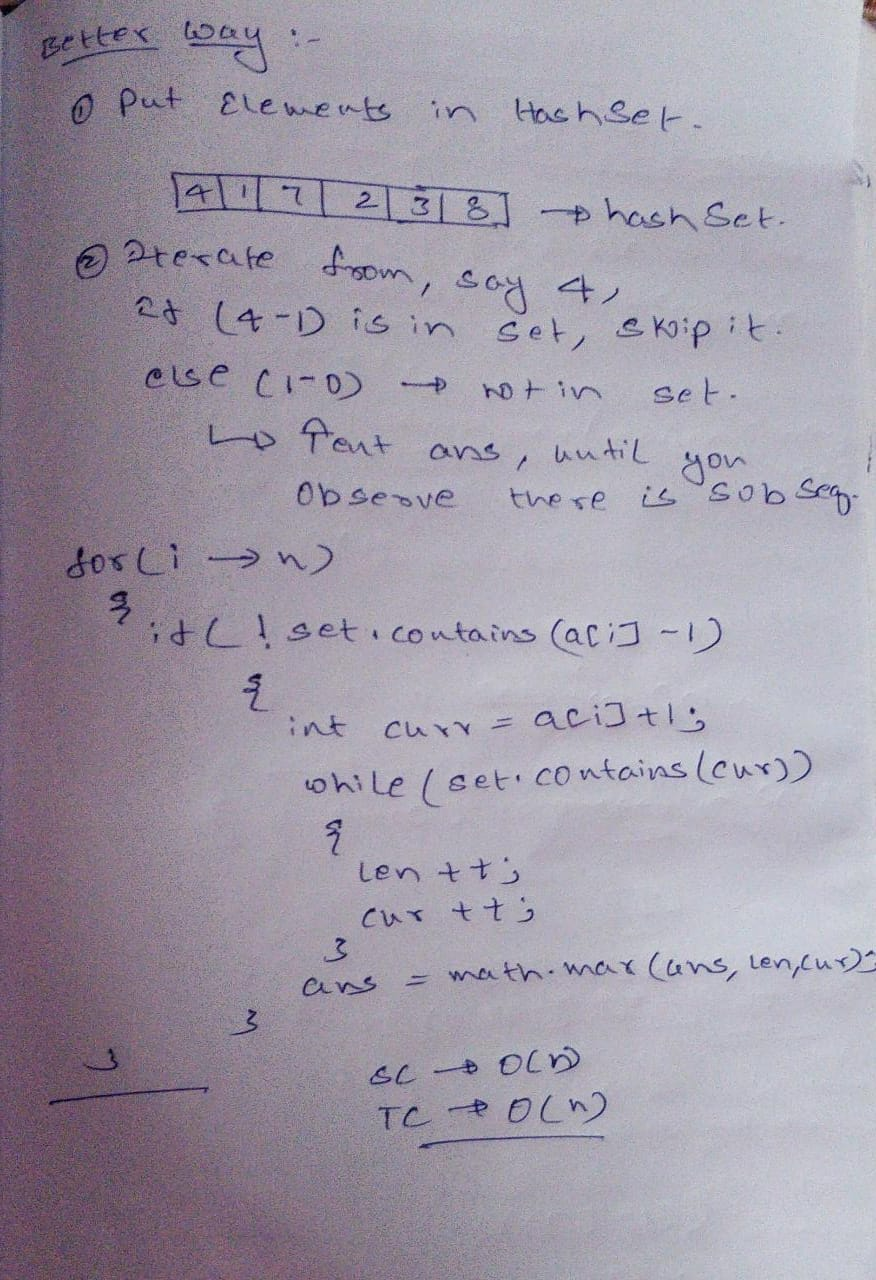 Better way :-
① Put Elements in HashSet.
4 | 1 | 7 | 2 | 3 | 8 → hash Set.
② Iterate from, say 4,
if (4-1) is in set, skip it.
else (1-0) → not in set.
↳ ans, until you
Observe there is sub seq.
for(i → n)
{
if( ! set.contains (a[i] -1)
{
int curr = a[i]+1;
while (set.contains(cur))
{
len ++;
cur ++;
}
ans = math.max (ans, len,cur);
}
}
SC → O(n)
TC → O(n)